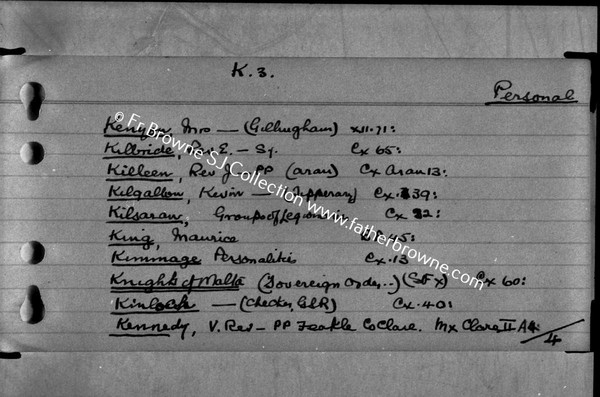 K.3.
Personal
Kenyon, Mrs — (Gillingham) XII.71:
Kilbride, Rev. E. — Sj. Cx 65:
Killeen, Rev J. PP (Aran) Cx Aran 13:
Kilgallon, Kevin — (Tipperary) Cx. 39:
Kilsaran, Groups of Legion Cx 32:
King, Maurice 45:
Kimmage Personalities Cx. 13
Knights of Malta (Sovereign Order..) (SFX) Cx 60:
Kinloch — (Checker, GSR) Cx. 40:
Kennedy, V. Rev — PP Feakle Co Clare. Mx Clare II A4:
4
© Fr Browne SJ Collection www.fatherbrowne.com